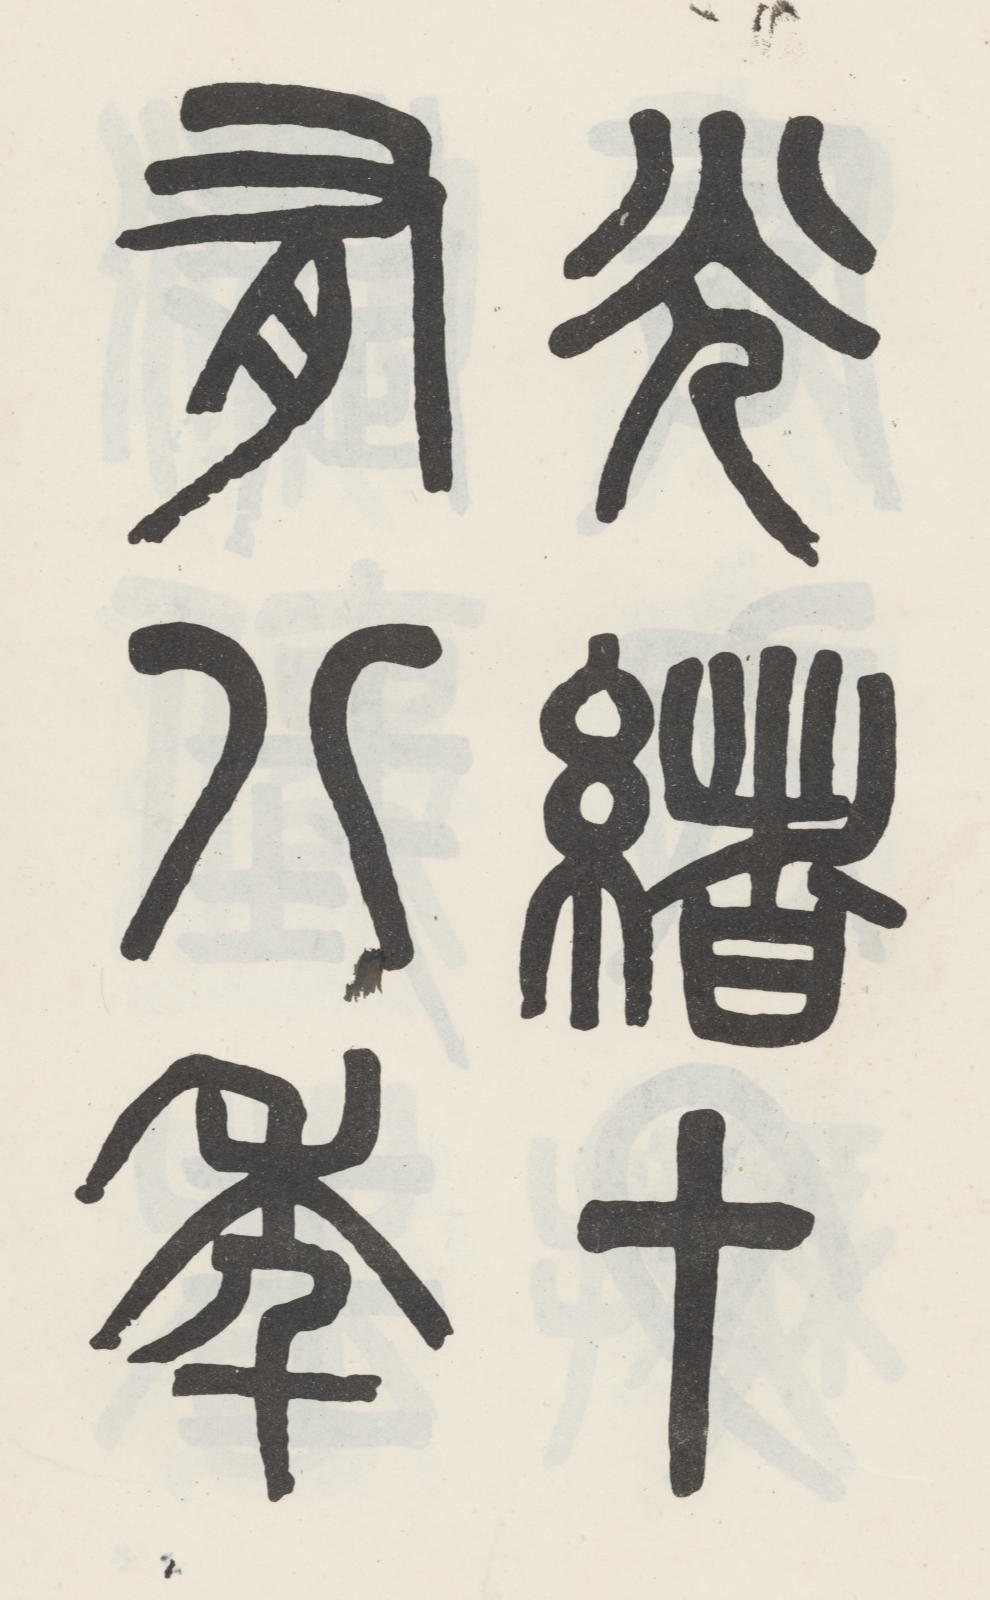 光緒十
有八年